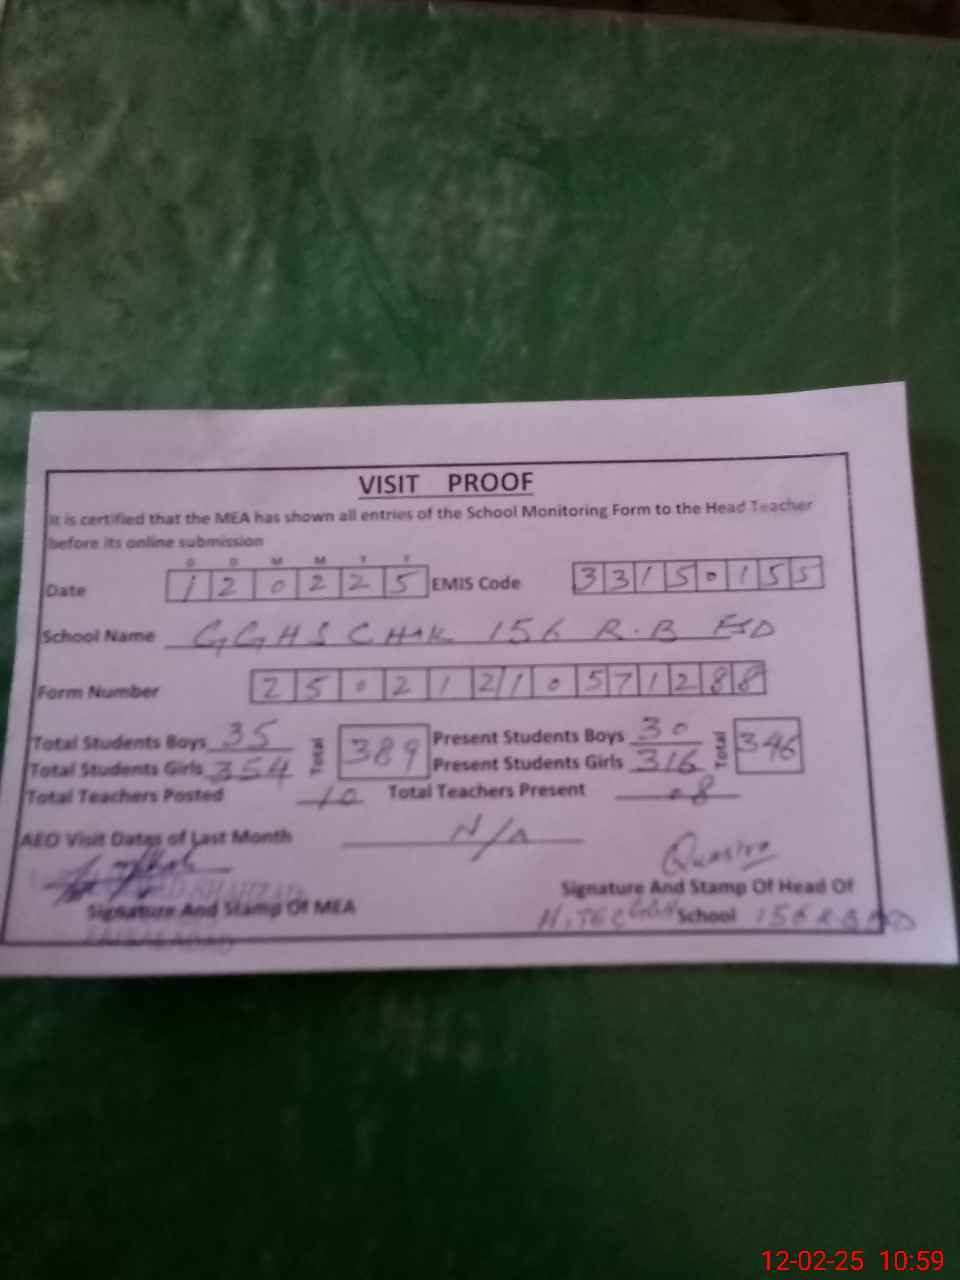 VISIT PROOF
It is certified that the MEA has shown all entries of the School Monitoring Form to the Head Teacher
before its online submission
D D M M Y Y
Date 120225 EMIS Code 33150155
School Name GGHS CHAK 156 R.B FSD
Form Number 25021210571288
Total Students Boys 35 Total 389 Present Students Boys 30 Total 346
Total Students Girls 354 Present Students Girls 316
Total Teachers Posted 10 Total Teachers Present 08
AEO Visit Dates of Last Month N/A
Signature And Stamp Of MEA
FAISALABAD
Signature And Stamp Of Head Of
School 156 R B
12-02-25 10:59